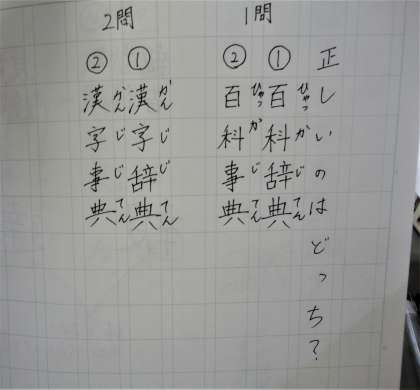 正しいのはどっち?
1問
①百科辞典
ひゃっかじてん
②百科事典
ひゃっかじてん
2問
①漢字辞典
かんじじてん
②漢字事典
かんじじてん